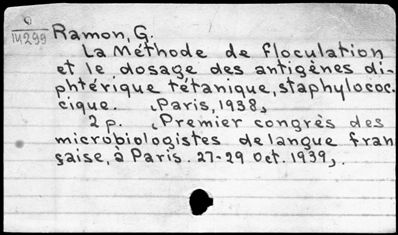 M299
Ramon, G.
La Méthode de floculation
et le dosage des antigènes di-
phtérique tétanique, staphylococ-
cique. (Paris, 1938,
2 p. (Premier congrès des
microbiologistes de langue fran
çaise, à Paris. 27-29 Oct. 1939,.